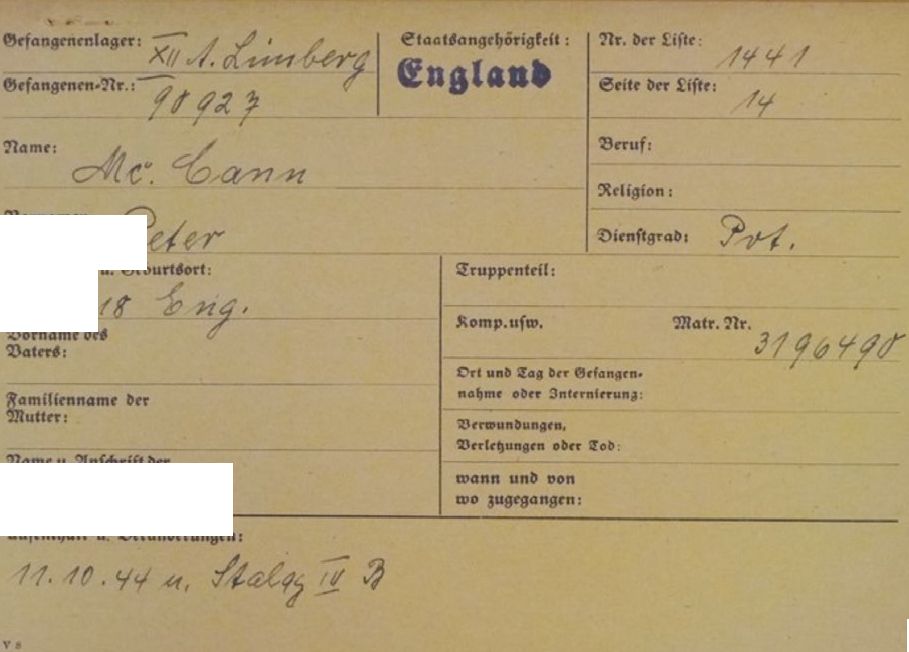 Gefangenenlager: XII A. Limberg
Staatsangehörigkeit: England
Nr. der Liste: 1441
Gefangenen-Nr.: 90927
Seite der Liste: 14
Name: Mc. Cann
Beruf:
Religion:
eter
Dienstgrad: Pvt.
u. Geburtsort:
18 Eng.
Truppenteil:
Vorname des
Vaters:
Komp.usw. Matr. Nr. 3196490
Familienname der
Mutter:
Ort und Tag der Gefangen-
nahme oder Internierung:
Verwundungen,
Verletzungen oder Tod:
Name u. Anschrift der
wann und von
wo zugegangen:
u. Veränderungen:
11.10.44 n. Stalag IV B
V 8